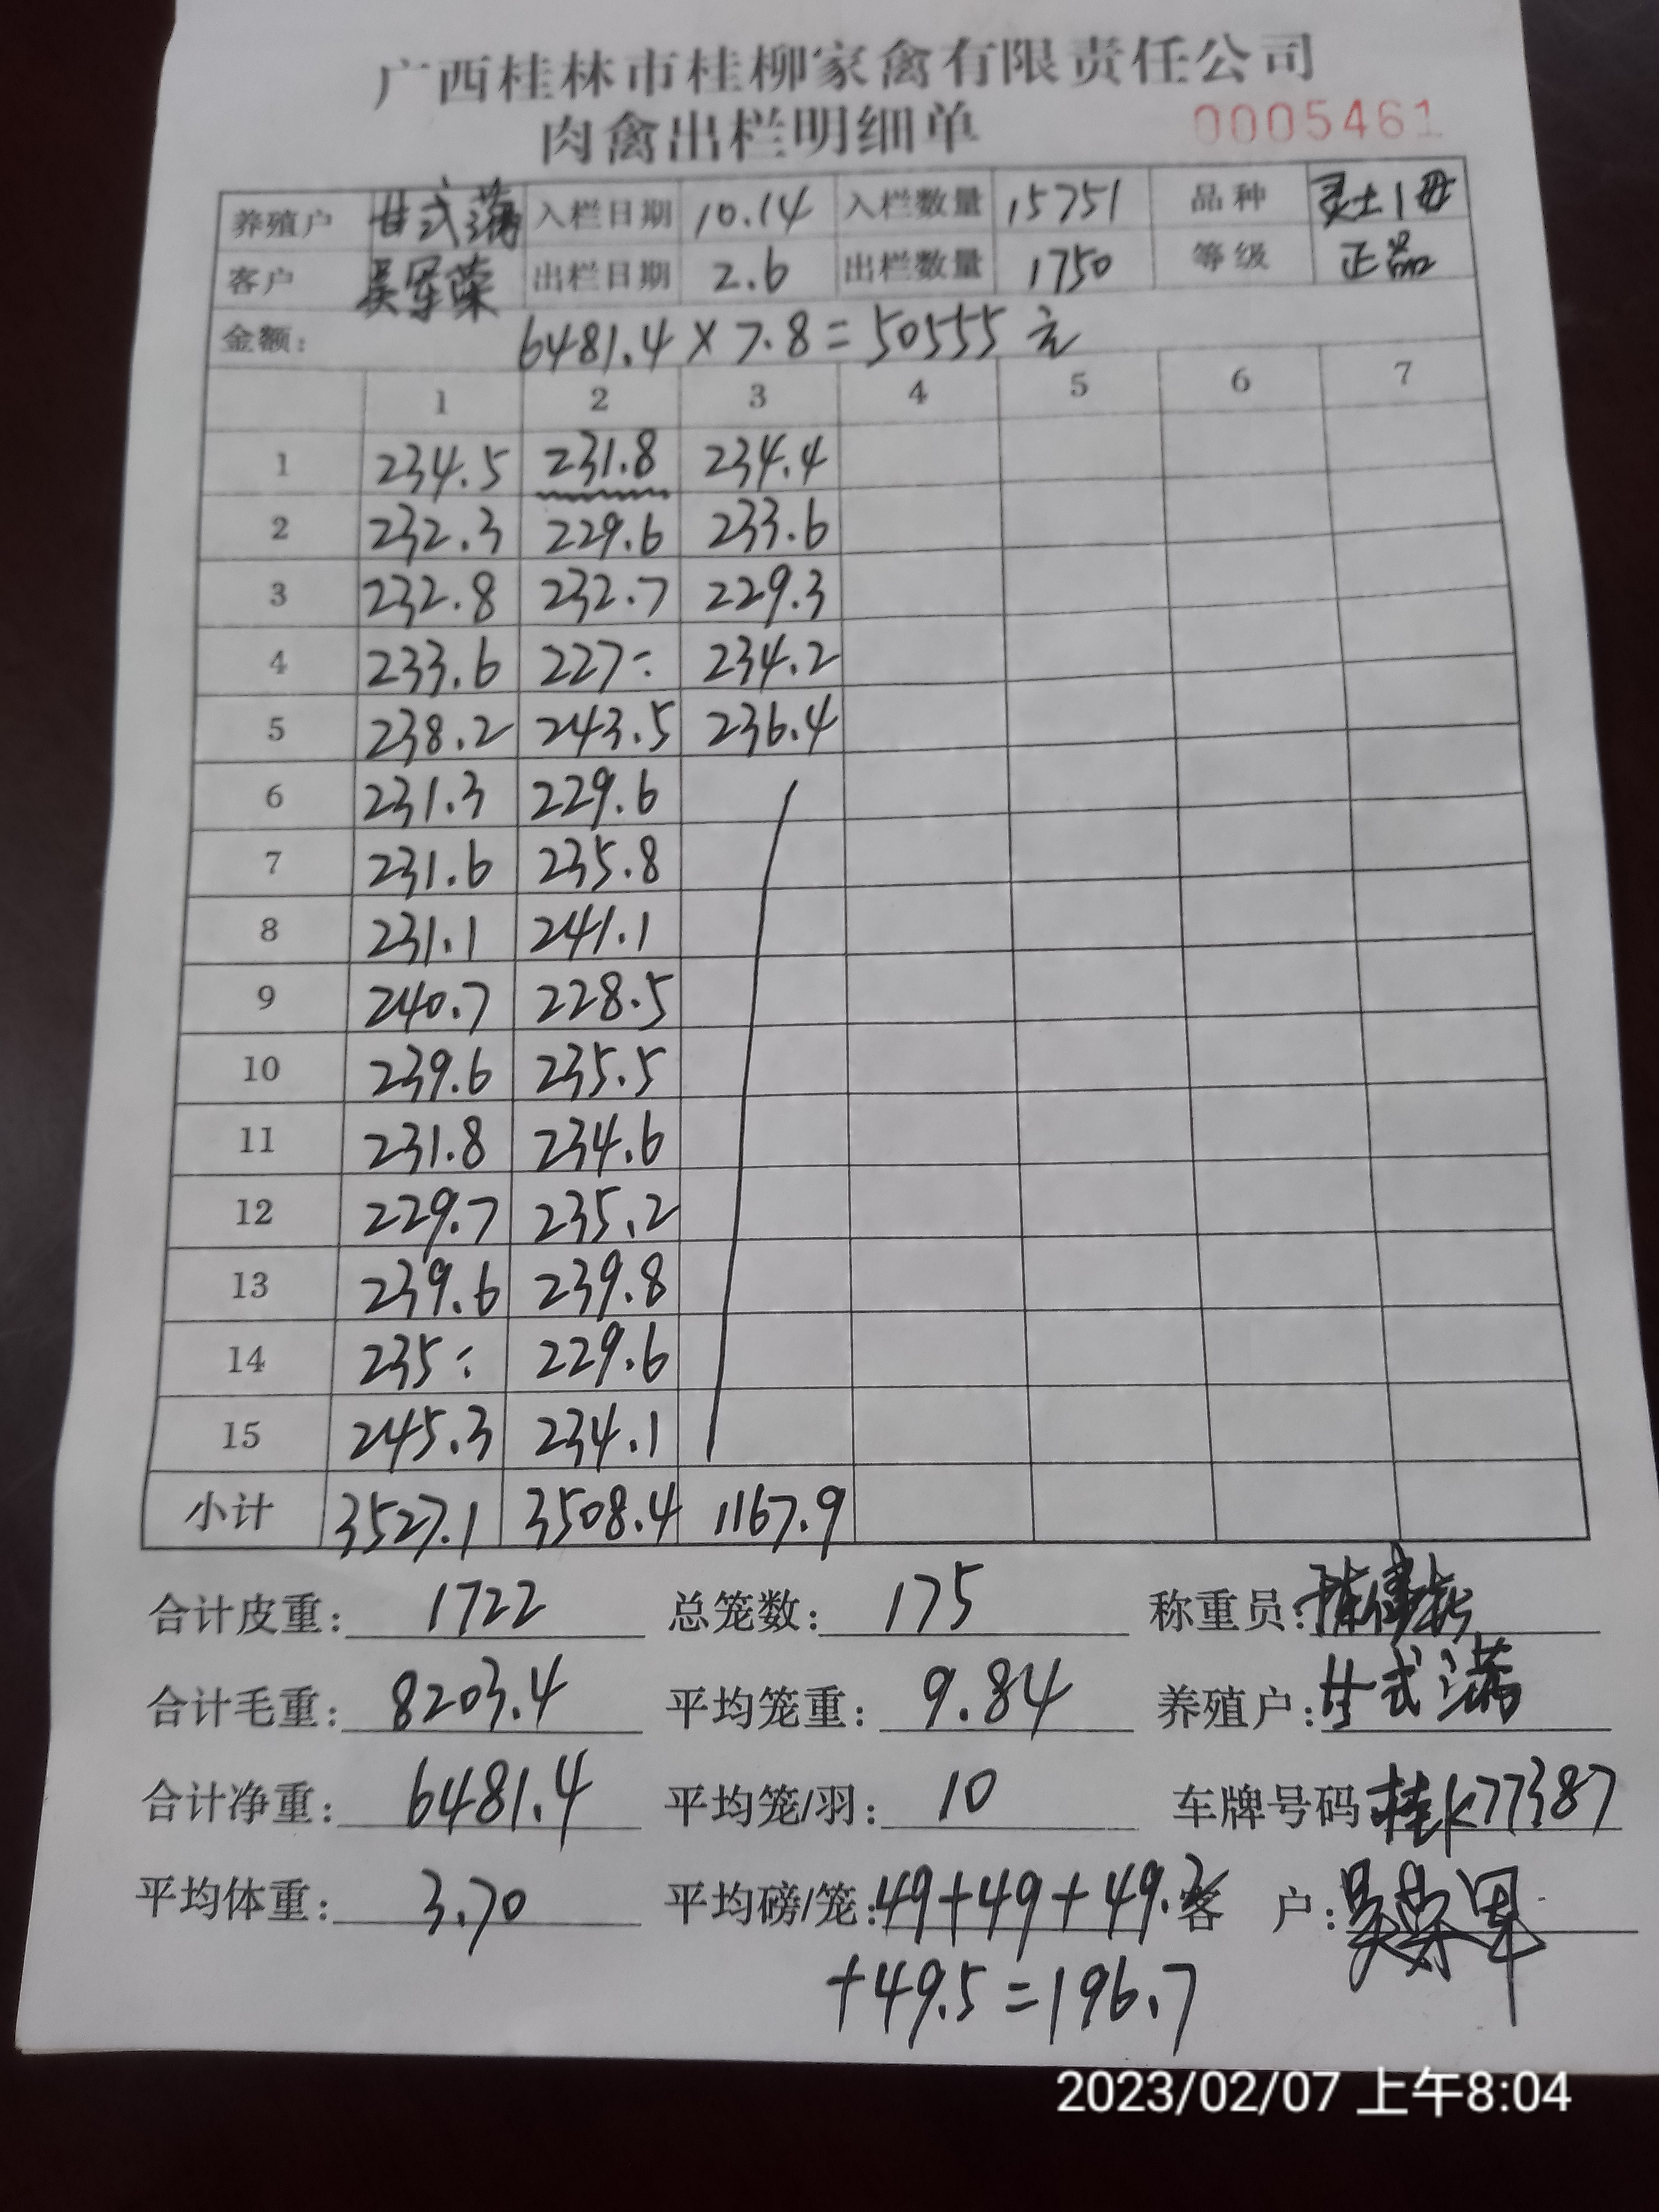 广西桂林市桂柳家禽有限责任公司
肉禽出栏明细单 0005461
养殖户 甘式满 入栏日期 10.14 入栏数量 15751 品种 灵土1母
客户 吴军荣 出栏日期 2.6 出栏数量 1750 等级 正品
金额: 6481.4×7.8=50555元
1 2 3 4 5 6 7
1 234.5 231.8 234.4
2 232.3 229.6 233.6
3 232.8 232.7 229.3
4 233.6 227: 234.2
5 238.2 243.5 236.4
6 231.3 229.6
7 231.6 235.8
8 231.1 241.1
9 240.7 228.5
10 239.6 235.5
11 231.8 234.6
12 229.7 235.2
13 239.6 239.8
14 235: 229.6
15 245.3 234.1
小计 3527.1 3508.4 1167.9
合计皮重: 1722 总笼数: 175 称重员:
合计毛重: 8203.4 平均笼重: 9.84 养殖户: 甘式满
合计净重: 6481.4 平均笼/羽: 10 车牌号码 桂K77387
平均体重: 3.70 平均磅/笼: 49+49+49.2 客 户: 吴荣军
+49.5=196.7
2023/02/07 上午8:04